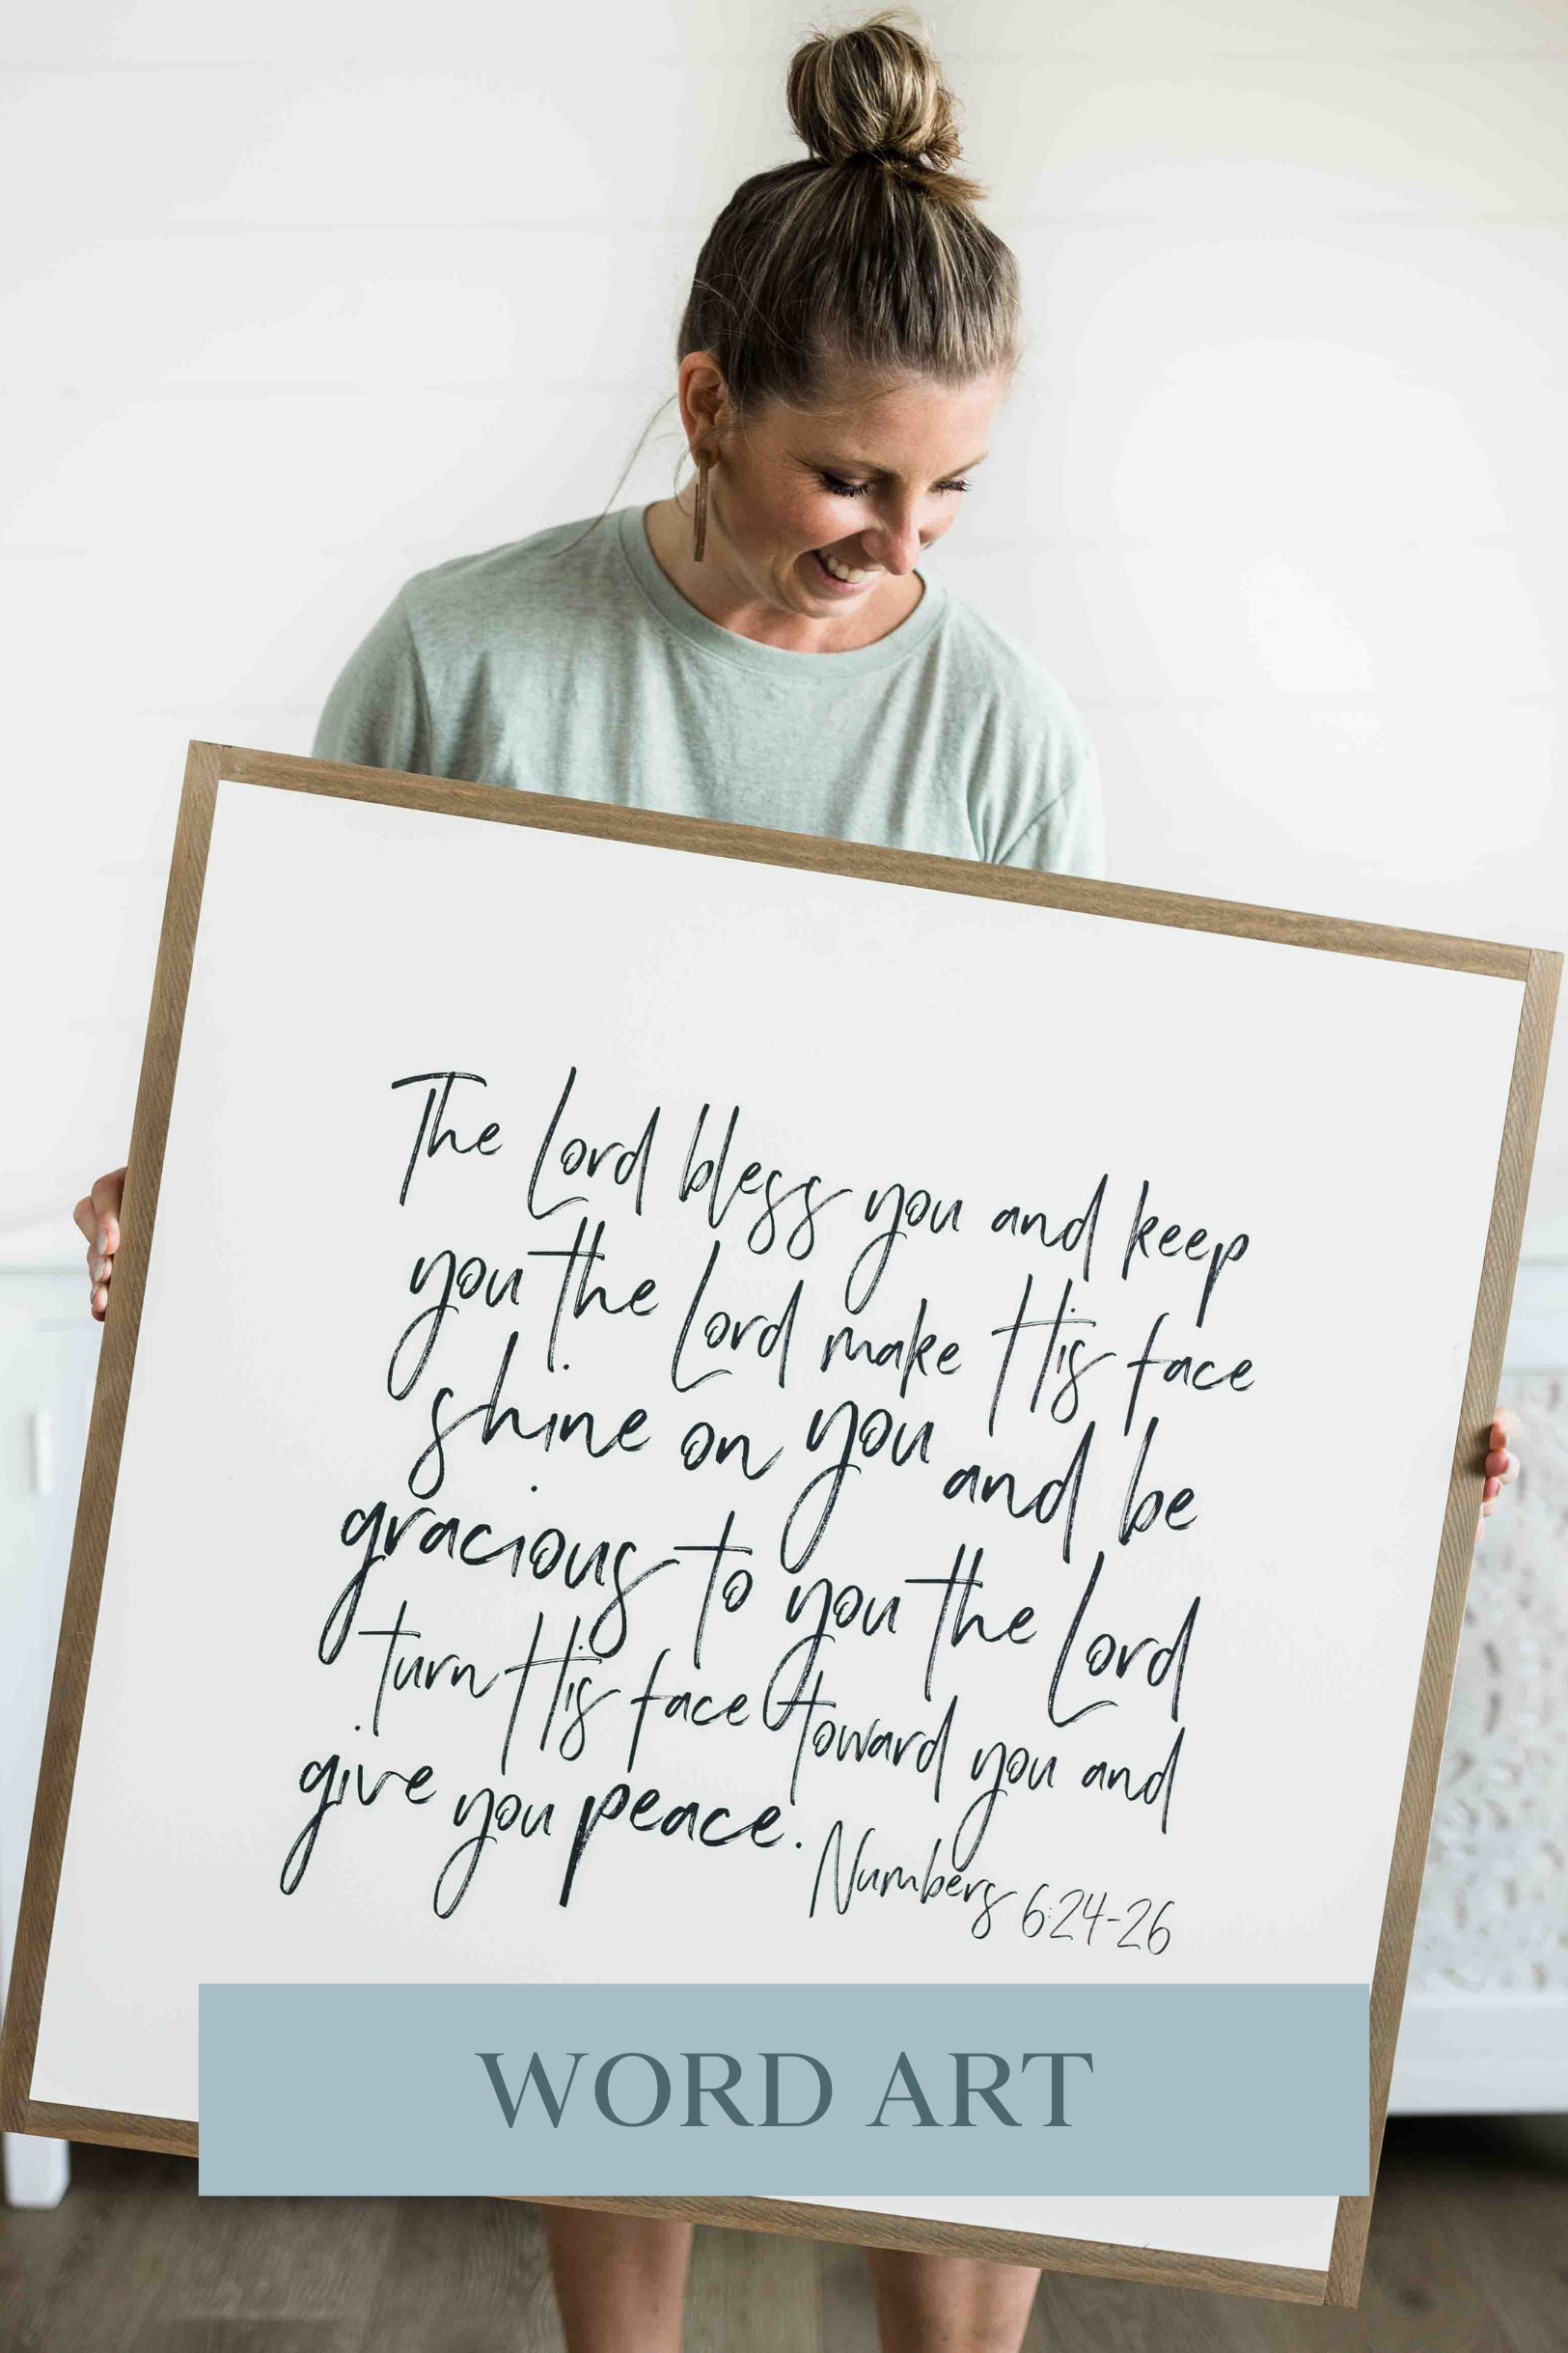 The Lord bless you and keep
you the Lord make His face
shine on you and be
gracious to you the Lord
turn His face toward you and
give you peace.
Numbers 6:24-26
WORD ART